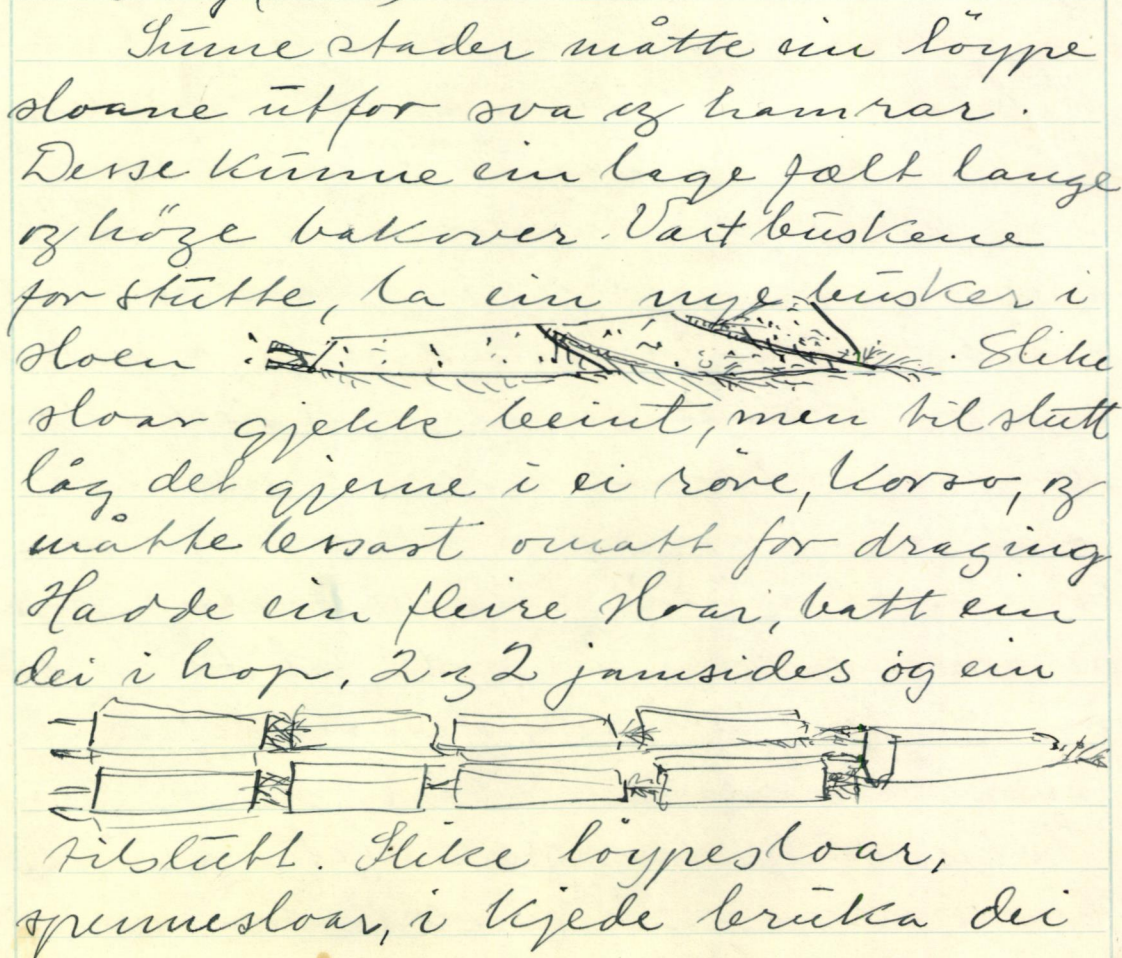 Sume stader måtte ein löype
sloane utfor sva og hamrar.
Desse kunne ein lage fælt lange
og höge bakover. Vart buskene
for stutte, la ein nye busker i
sloen . Slike
sloar gjekk beint, men til slutt
låg det gjerne i ei röve, Korso, og
måtte lessast omatt for draging
Hadde ein fleire sloar, batt ein
dei i hop, 2 og 2 jamsides og ein
tilslutt. Slike löypesloar,
spennesloar, i kjede bruka dei